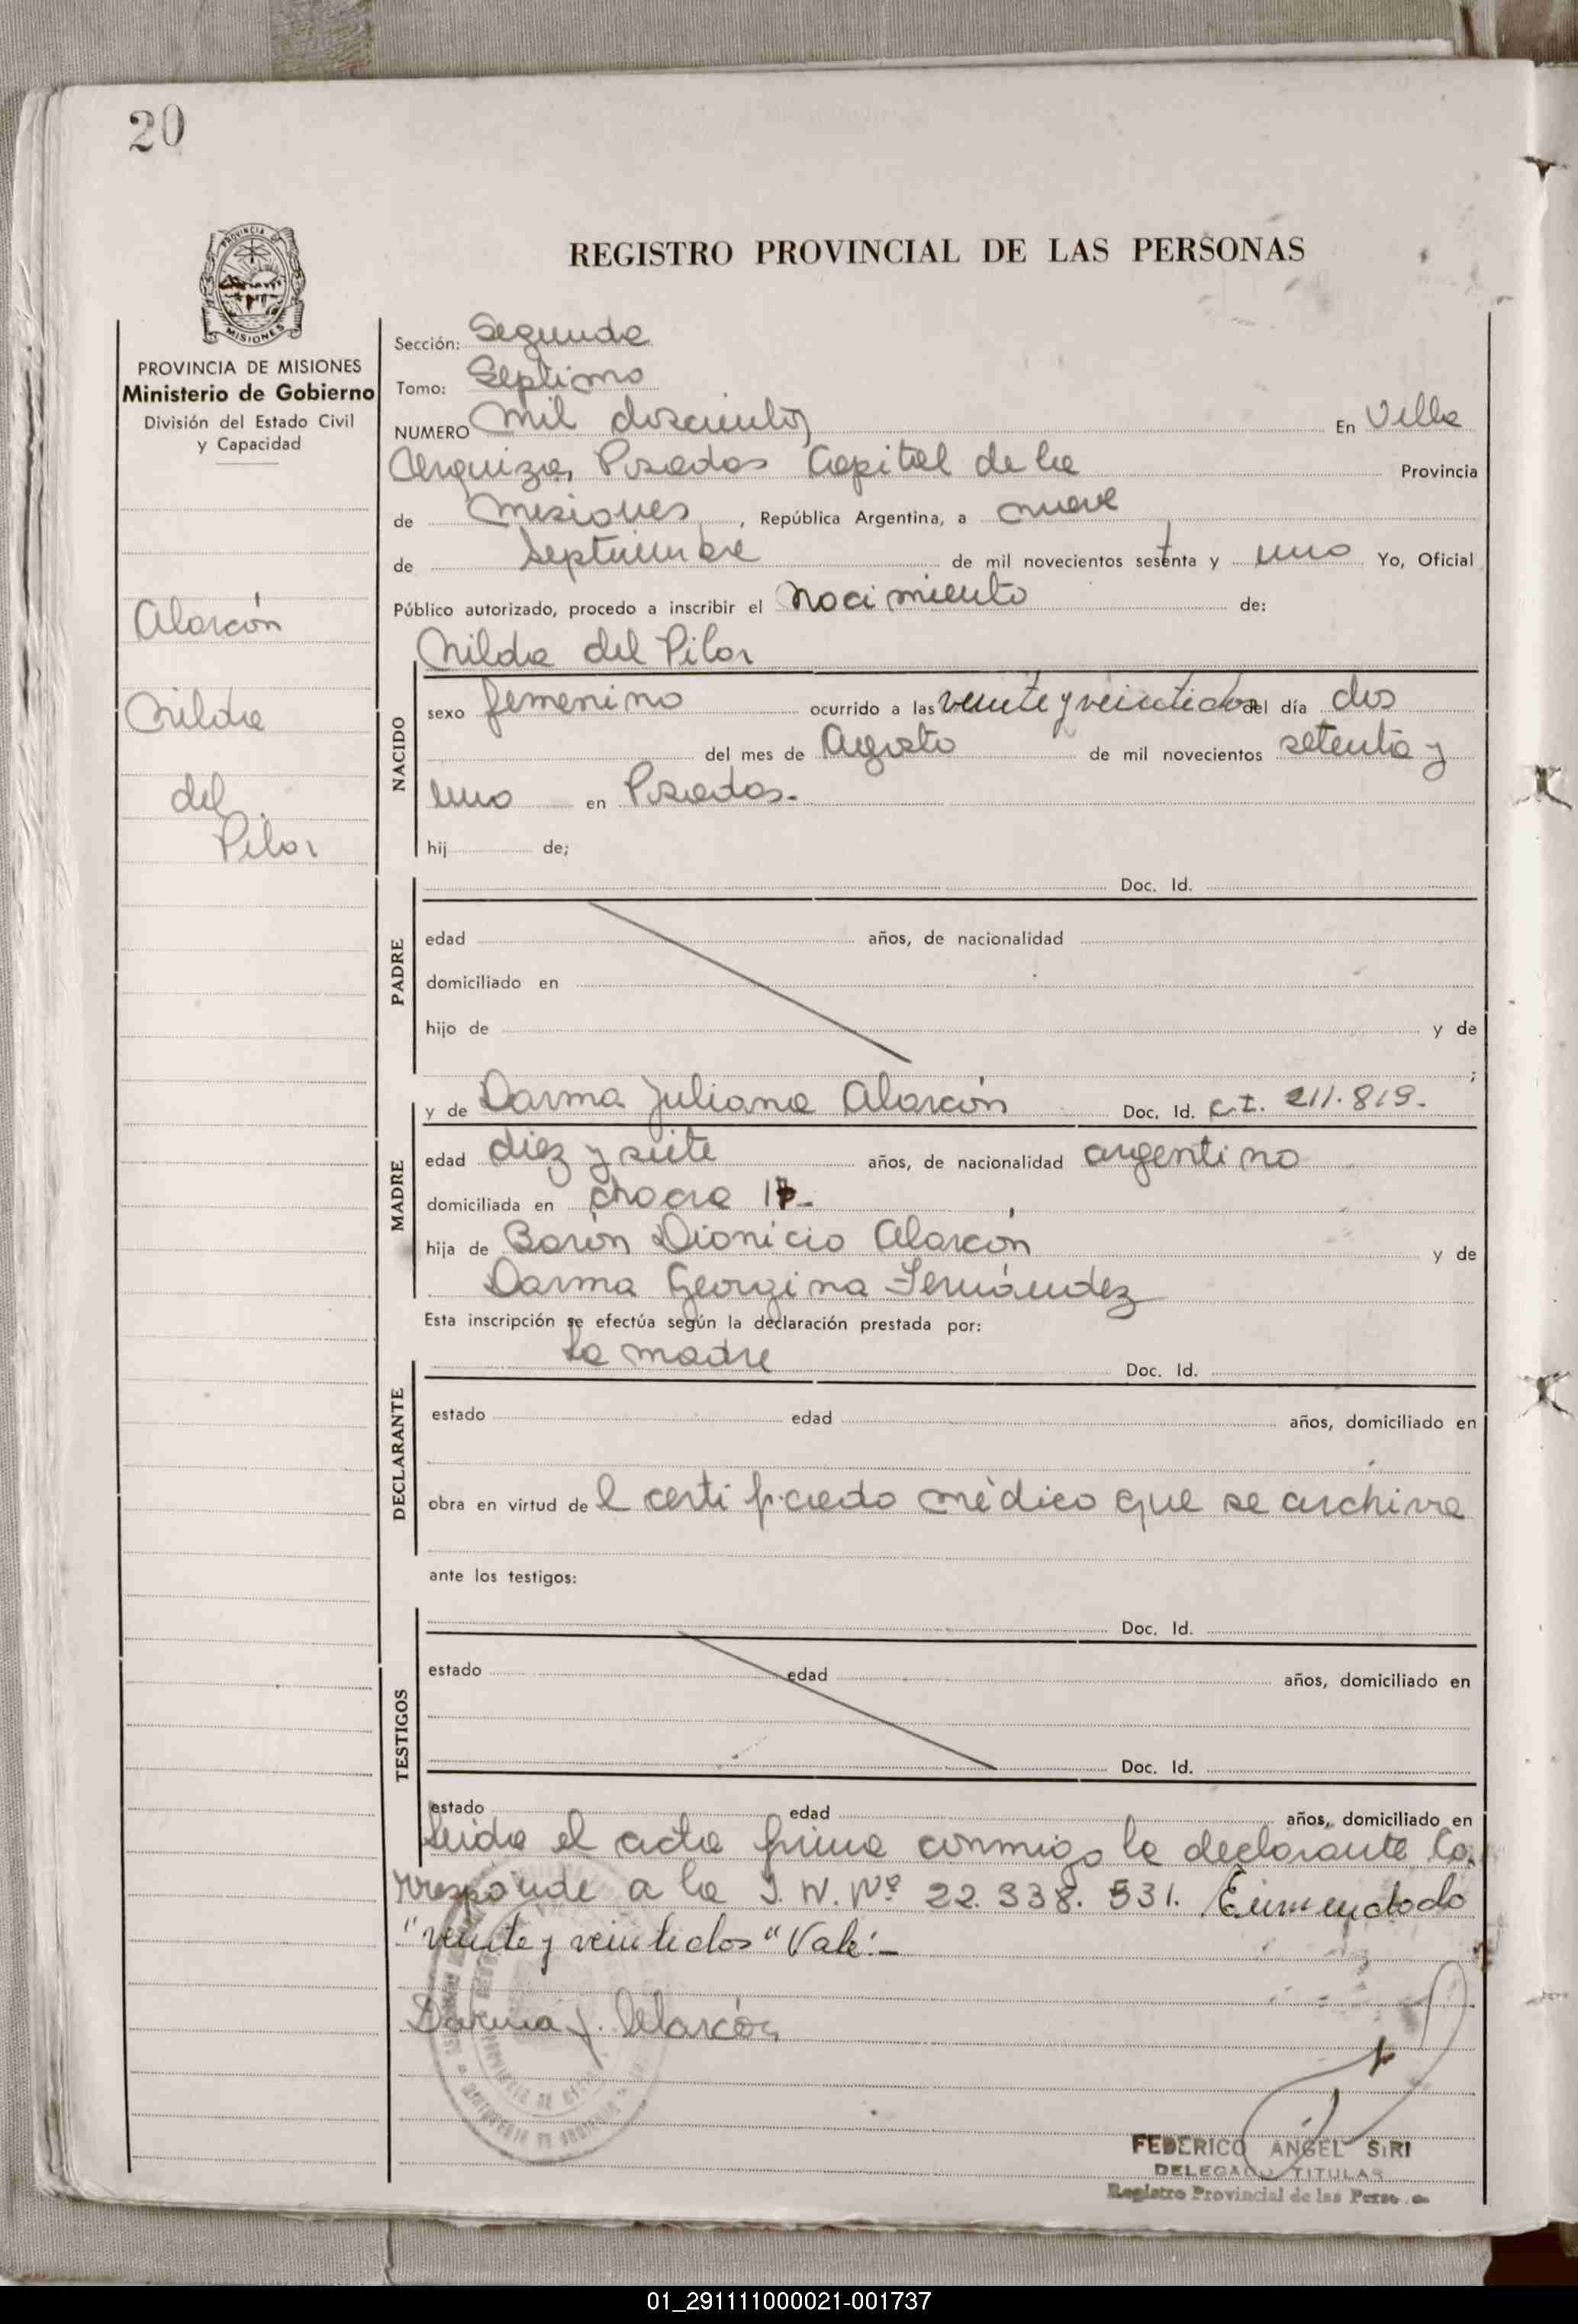 20
PROVINCIA
MISIONES
PROVINCIA DE MISIONES
Ministerio de Gobierno
División del Estado Civil
y Capacidad
Alarcón
Nilda
del
Pilar
REGISTRO PROVINCIAL DE LAS PERSONAS
Sección: Segunda
Tomo: Septimo
NUMERO Mil doscientos En Villa
Urquiza, Posadas Capital de la Provincia
de Misiones, República Argentina, a nueve
de Septiembre de mil novecientos setenta y uno Yo, Oficial
Público autorizado, procedo a inscribir el Nacimiento de:
Nilda del Pilar
NACIDO
sexo femenino ocurrido a las veinte y veintidos del día dos
del mes de Agosto de mil novecientos setenta y
uno en Posadas.-
hij de;
PADRE
Doc. Id.
edad años, de nacionalidad
domiciliado en
hijo de y de
;
MADRE
y de Darma Juliana Alarcón Doc. Id. C.I. 211.819.
edad diez y siete años, de nacionalidad argentina
domiciliada en chacra
hija de Barón Dionicio Alarcón y de
Darma Georgina Fernández
Esta inscripción se efectúa según la declaración prestada por:
DECLARANTE
La madre Doc. Id.
estado edad años, domiciliado en
obra en virtud del certificado médico que se archiva
ante los testigos:
TESTIGOS
Doc. Id.
estado edad años, domiciliado en
Doc. Id.
estado edad años, domiciliado en
Leida el acta firma conmigo la declarante Co.
rresponde a la I.N. Nº 22.338.531. Enmendado
"veinte y veintidos" Vale.-
Darma J. Alarcón
FEDERICO ANGEL SIRI
DELEGADO TITULAR
Registro Provincial de las Perso
01_291111000021-001737